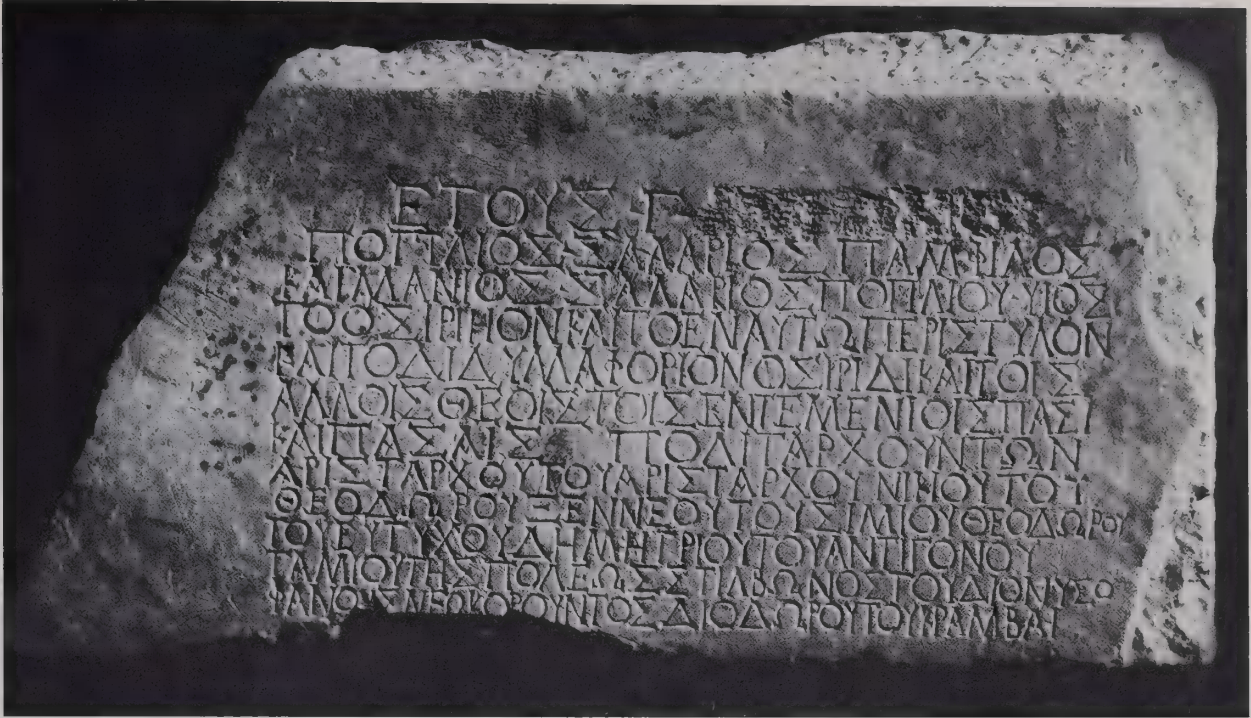 ΕΤΟΥΣ Γ
ΠΟΠΛΙΟΣ ΣΑΛΑΡΙΟΣ ΠΑΜΦΙΛΟΣ
ΚΑΙ ΜΑΝΙΟΣ ΣΑΛΑΡΙΟΣ ΠΟΠΛΙΟΥ ΥΙΟΣ
ΤΟ ΟΣΙΡΙΗΟΝ ΚΑΙ ΤΟ ΕΝ ΑΥΤΩ ΠΕΡΙΣΤΥΛΟΝ
ΚΑΙ ΤΟ ΔΙΔΥΜΑΦΟΡΙΟΝ ΟΣΙΡΙΔΙ ΚΑΙ ΤΟΙΣ
ΑΛΛΟΙΣ ΘΕΟΙΣ ΤΟΙΣ ΕΝΤΕΜΕΝΙΟΙΣ ΠΑΣΙ
ΚΑΙ ΠΑΣΑΙΣ ΠΟΛΙΤΑΡΧΟΥΝΤΩΝ
ΑΡΙΣΤΑΡΧΟΥ ΤΟΥ ΑΡΙΣΤΑΡΧΟΥ ΝΙΚΟΥ ΤΟΥ
ΘΕΟΔΩΡΟΥ ΞΕΝΝΕΟΥ ΤΟΥ ΣΙΜΙΟΥ ΘΕΟΔΩΡΟΥ
ΤΟΥ ΕΥΤΥΧΟΥ ΔΗΜΗΤΡΙΟΥ ΤΟΥ ΑΝΤΙΓΟΝΟΥ
ΤΑΜΙΟΥ ΤΗΣ ΠΟΛΕΩΣ ΣΤΙΛΒΩΝΟΣ ΤΟΥ ΔΙΟΝΥΣΟ
ΦΑΝΟΥΣ ΝΕΩΚΟΡΟΥΝΤΟΣ ΔΙΟΔΩΡΟΥ ΤΟΥ ΚΡΑΜΒΑΙ